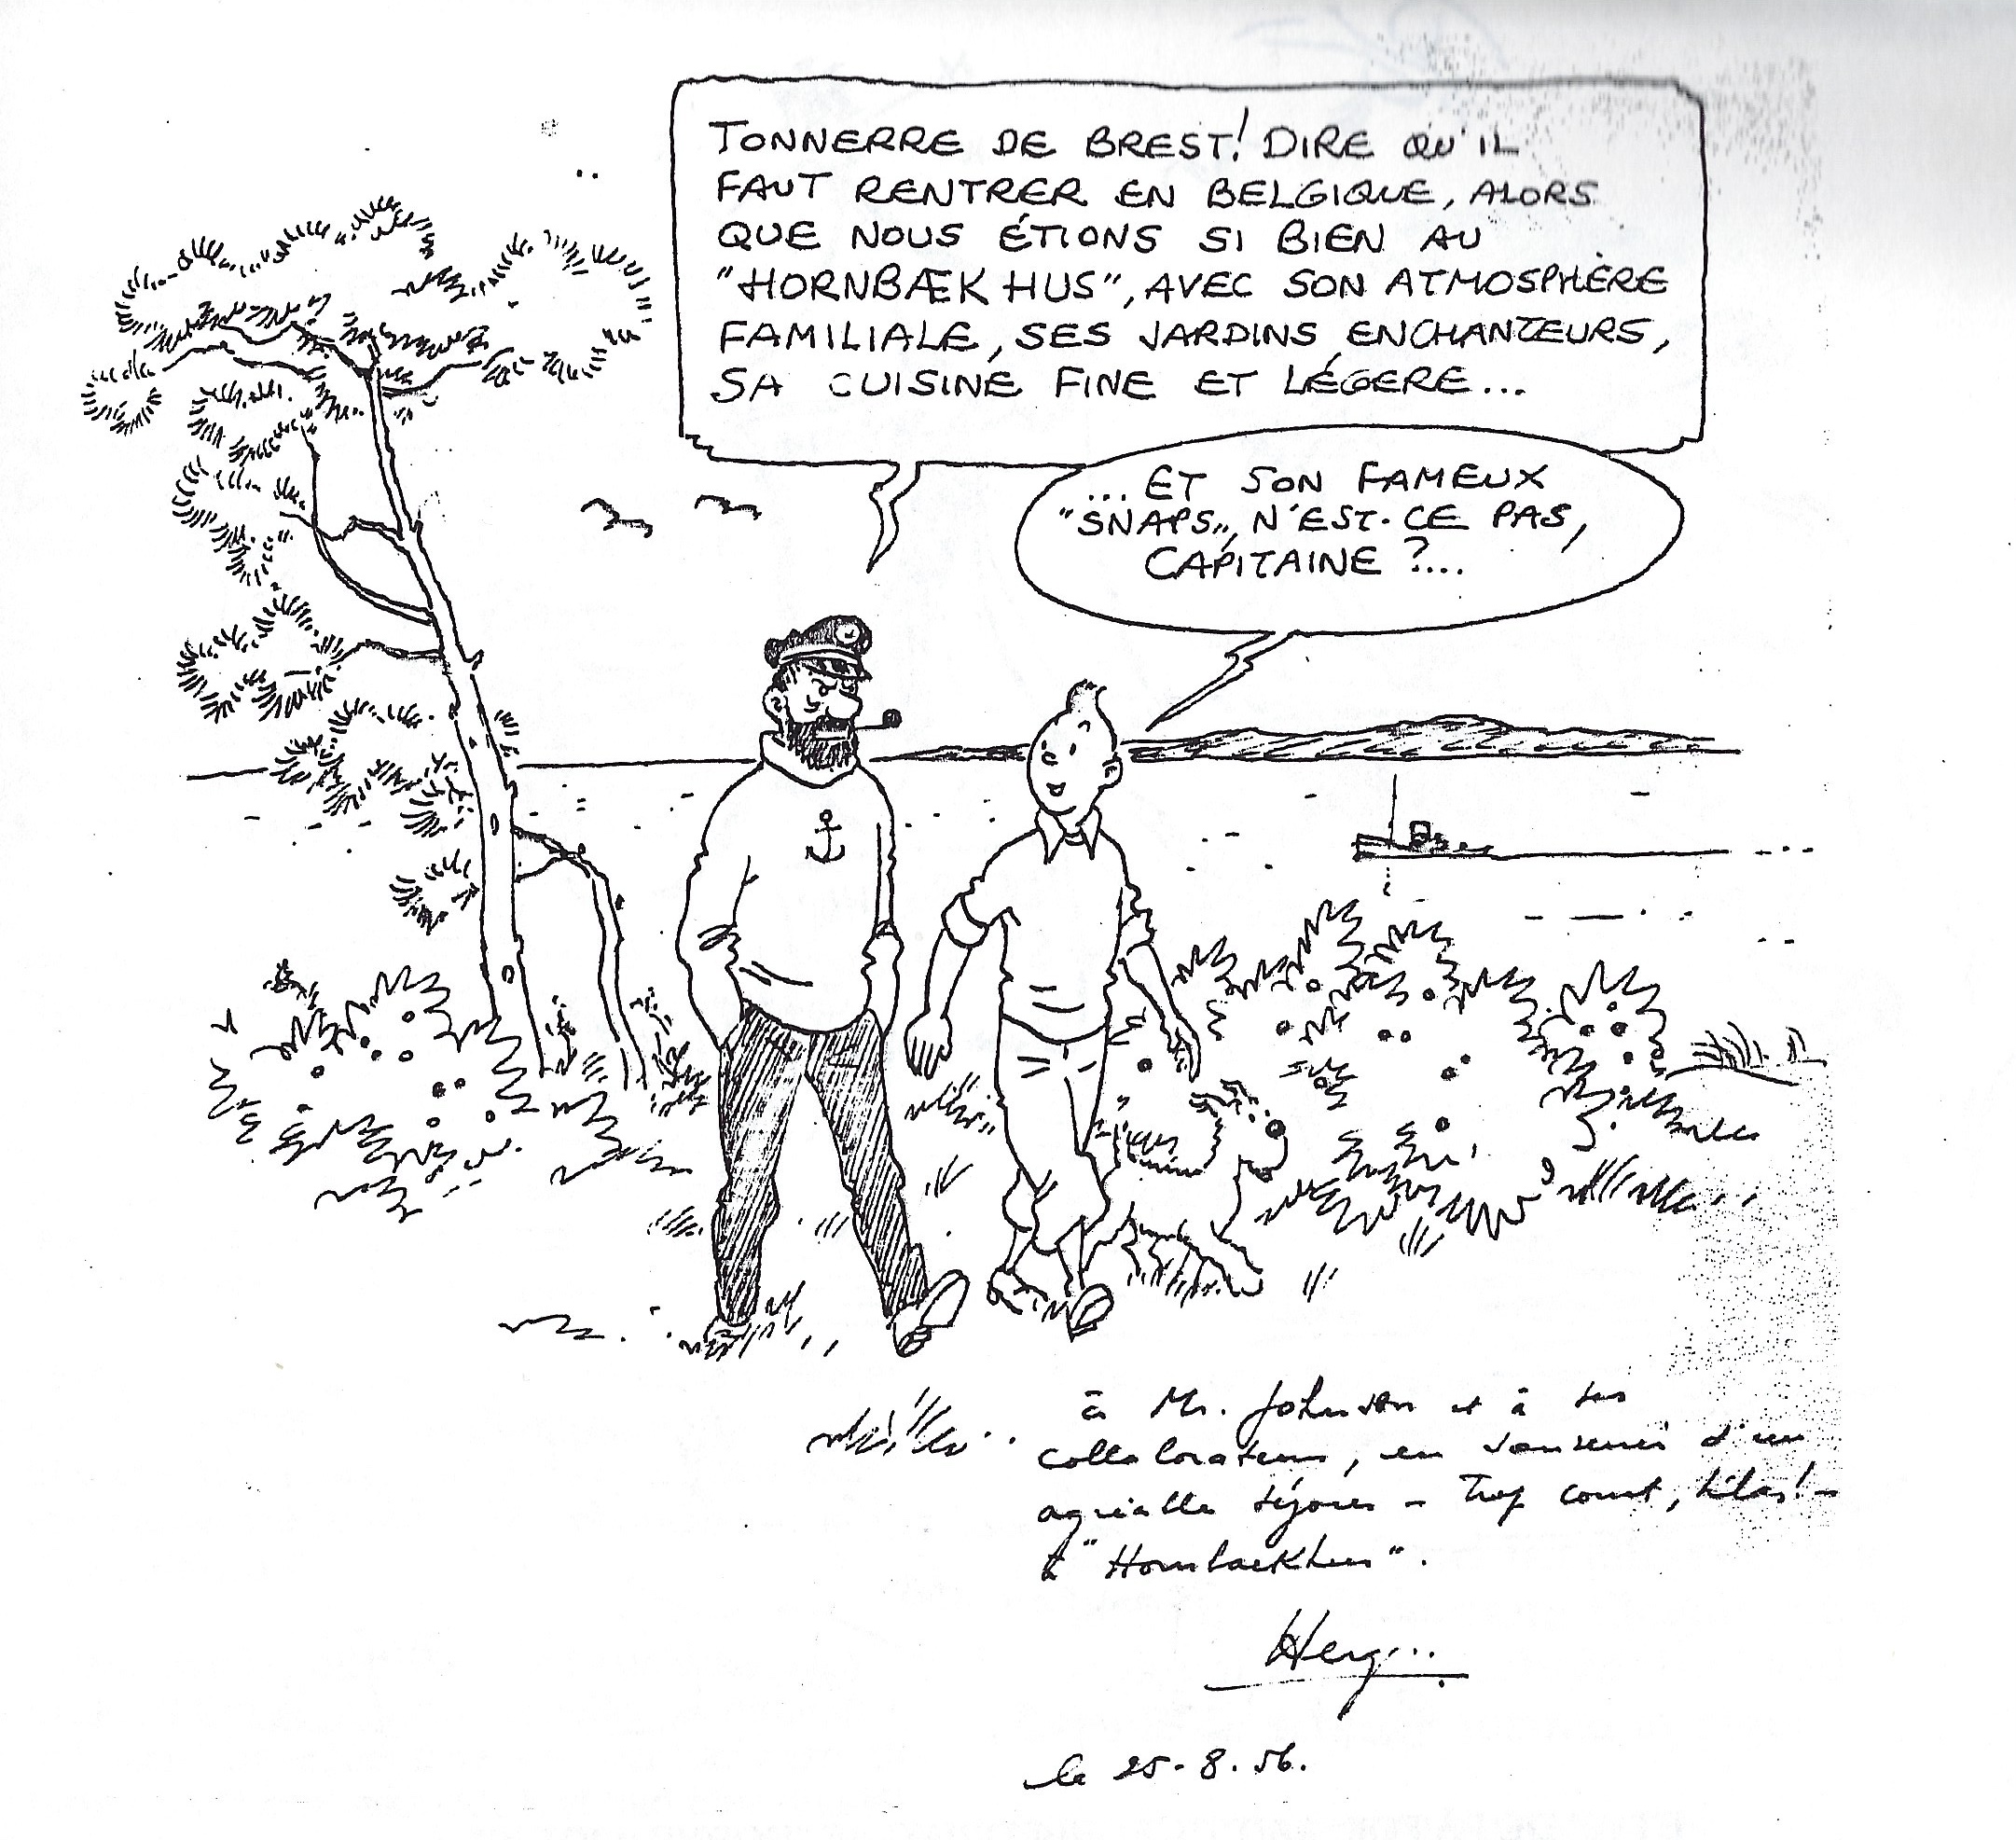 TONNERRE DE BREST! DIRE QU'IL
FAUT RENTRER EN BELGIQUE, ALORS
QUE NOUS ÉTIONS SI BIEN AU
"HORNBÆK HUS", AVEC SON ATMOSPHÈRE
FAMILIALE, SES JARDINS ENCHANTEURS,
SA CUISINE FINE ET LÉGÈRE...
...ET SON FAMEUX
"SNAPS", N'EST-CE PAS,
CAPITAINE ?...
à Mr. Johnsen et à ses
collaborateurs, en souvenir d'un
agréable séjour – trop court, hélas! –
à "Hornbaekhus".
Hergé
le 25-8.56.